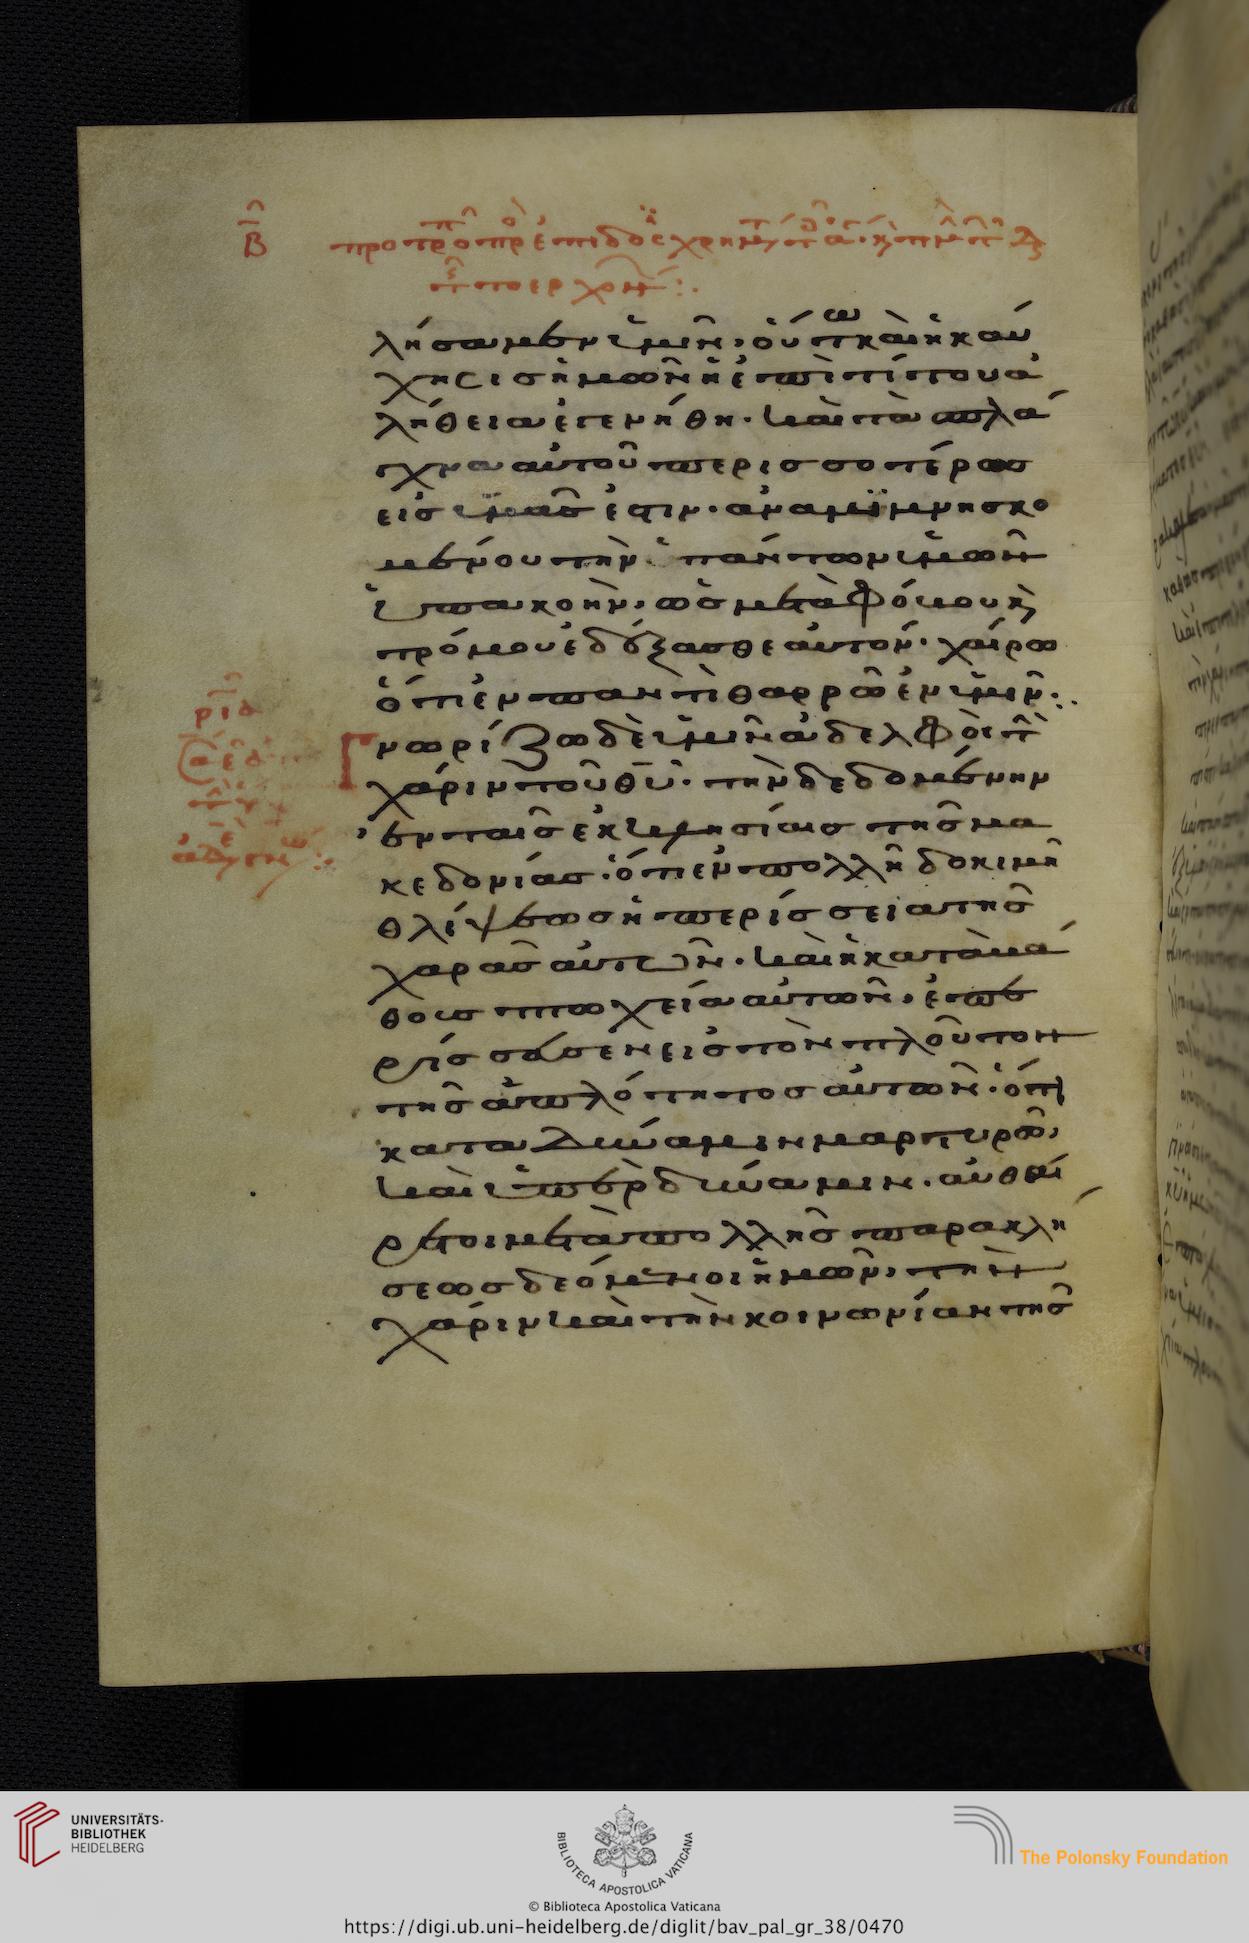 Β
λήσαμεν ὑμῖν, οὕτω καὶ ἡ καύ
χησισ ἡμῶν ἡ ἐπὶ τίτου ἀ
λήθεια ἐγενήθη. καὶ τὰ σπλά
γχνα αὐτοῦ περισσοτέρωσ
εἰσ ὑμᾶσ ἐστιν. ἀναμϊμνησκο
μένου τὴν πάντων ὑμῶν
ὑπακοὴν, ὡσ μετὰ φόβου κ
τρόμου ἐδέξασθε αὐτόν. χαίρω
ὅτι ἐν παντὶ θαρρῶ ἐν ὑμῖν.
Γνωρίζω δὲ ὑμῖν ἀδελφοὶ τ
χάριν τοῦ θυ. τὴν δεδομένην
ἐν ταῖσ ἐκκλησίαισ τῆσ μα
κεδονίασ. ὅτι ἐν πολλῆ δοκιμῆ
θλίψεωσ ἡ περίσσεια τῆσ
χαρᾶσ αὐτῶν. καὶ ἡ κατὰ βά
θουσ πτωχεία αὐτῶν, ἐπε
ρίσσευσεν εἰσ τὸν πλοῦτον
τῆσ ἁπλότητοσ αὐτῶν. ὅτι
κατα δύναμιν μαρτυρῶ,
καὶ ὑπὲρ δύναμιν. αὐθαί
ρετοι μετὰ πολλῆσ παρακλή
σεωσ δεόμενοι ἡμῶν, τὴν
χάριν καὶ τὴν κοινωνίαν τῆσ
UNIVERSITÄTS-
BIBLIOTHEK
HEIDELBERG
BIBLIOTECA APOSTOLICA VATICANA
The Polonsky Foundation
© Biblioteca Apostolica Vaticana
https://digi.ub.uni-heidelberg.de/diglit/bav_pal_gr_38/0470